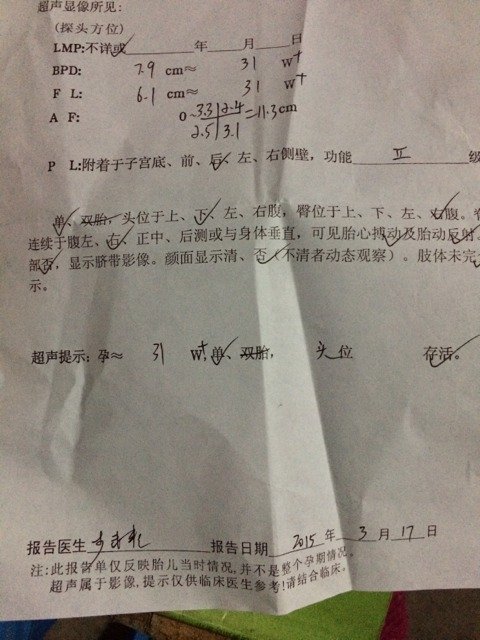 超声显像所见:
(探头方位)
LMP:不详或 年 月 日
BPD: 7.9 cm≈ 31 W+
F L: 6.1 cm≈ 31 W+
A F: 3.3 2.4 =11.3cm
2.5 3.1
P L:附着于子宫底、前、后、左、右侧壁,功能 Ⅱ 级
单、双胎,头位于上、下、左、右腹,臀位于上、下、左、右腹。脊
连续于腹左、右、正中、后测或与身体垂直,可见胎心搏动及胎动反射。
部否,显示脐带影像。颜面显示清、否(不清者动态观察)。肢体未完
示。
超声提示:孕≈ 31 W+,单、双胎, 头 位 存活。
报告医生 报告日期 2015 年 3 月 17 日
注:此报告单仅反映胎儿当时情况,并不是整个孕期情况。
超声属于影像,提示仅供临床医生参考!请结合临床。